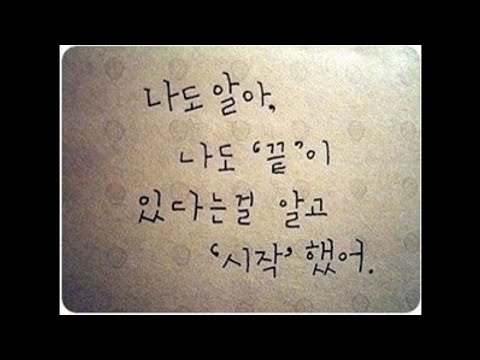 나도 알아,
나도 ‘끝’이
있다는걸 알고
‘시작’ 했어.